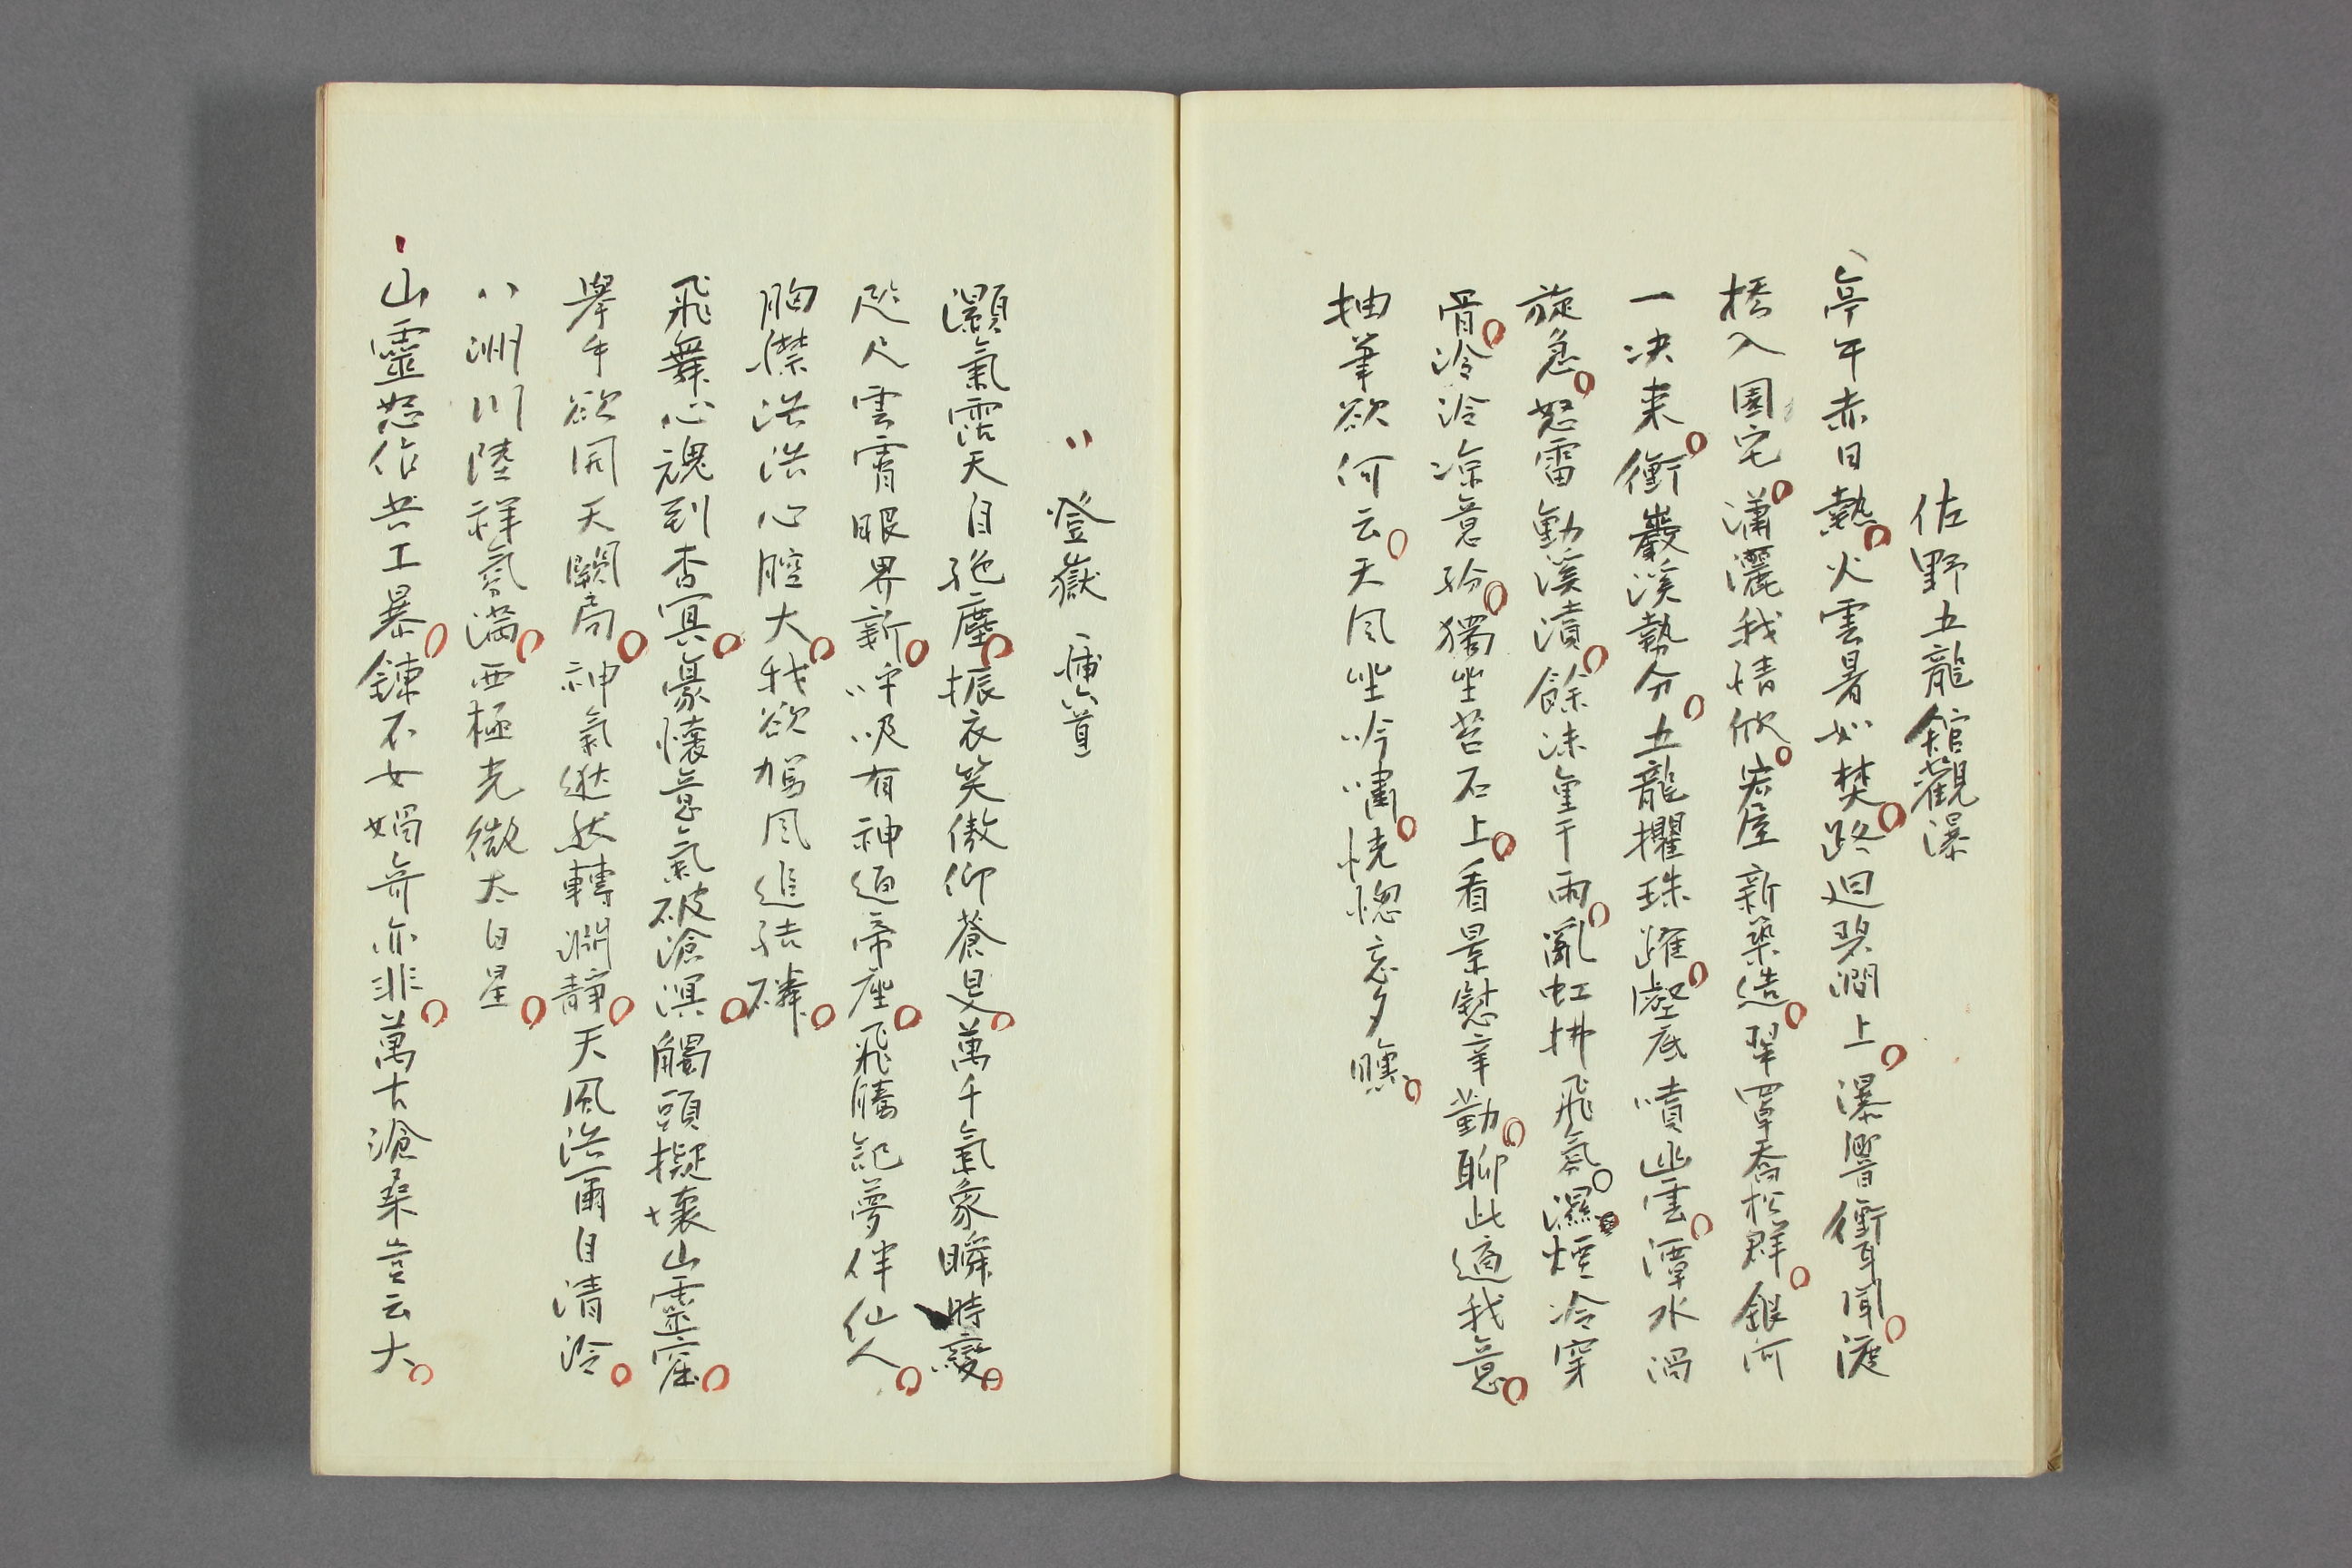 佐野五龍館觀瀑
亭午赤日熱火雲暑如焚路迴碧澗上瀑響衝耳聞渡
橋入園宅瀟灑我情欣宏屋新築造翠罩喬松群銀河
一决来衝巖溪勢分五龍攫珠躍壑底噴幽雲潭水渦
旋急怒雷動溪濆餘沫重千雨亂虹拂飛氛濕煙冷穿
骨冷泠凉意紛獨坐苔石上看景慰辛勤聊此適我意
抽筆欲何云天風坐吟嘯恍惚忘夕曛
登嶽 六首
灝氣霑天自絶塵振衣笑傲仰蒼旻萬千氣象瞬時變
咫尺雲霄眼界新呼吸有神通帝座飛騰記夢伴仙人
胸襟浩浩心腔大我欲駕風追結磷
飛舞心魂到杳冥豪懷意氣破滄溟觸頭擬壊山靈窟
擧手欲開天闕扃神氣逖然轉澗靜天風浩爾自清泠
八洲川陸祥氛満西極光微太白星
山靈怒作共工暴錬石女媧奇亦非萬古滄桑豈云大